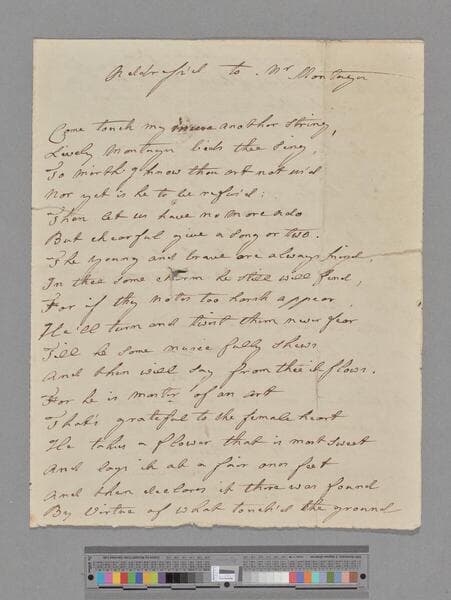 Addrefs'd to Mr Montuyn
Come touch my muse another string,
Lively Montuyn bids thee sing,
To mirth I know thou art not us'd
Nor yet is he to be refus'd:
Then let us have no more ado
But chearful give a song or two.
The young and brave are always kind,
In thee some charm he still will find,
For if thy notes too harsh appear
He'll turn and twist them never fear
Till he some music fully shews
And then will say from thee it flows.
For he is master of an art
That's grateful to the female heart
He takes a flower that is most sweet
And lays it at a fair ones feet
And then declares it there was found
By Virtue of what touch'd the ground